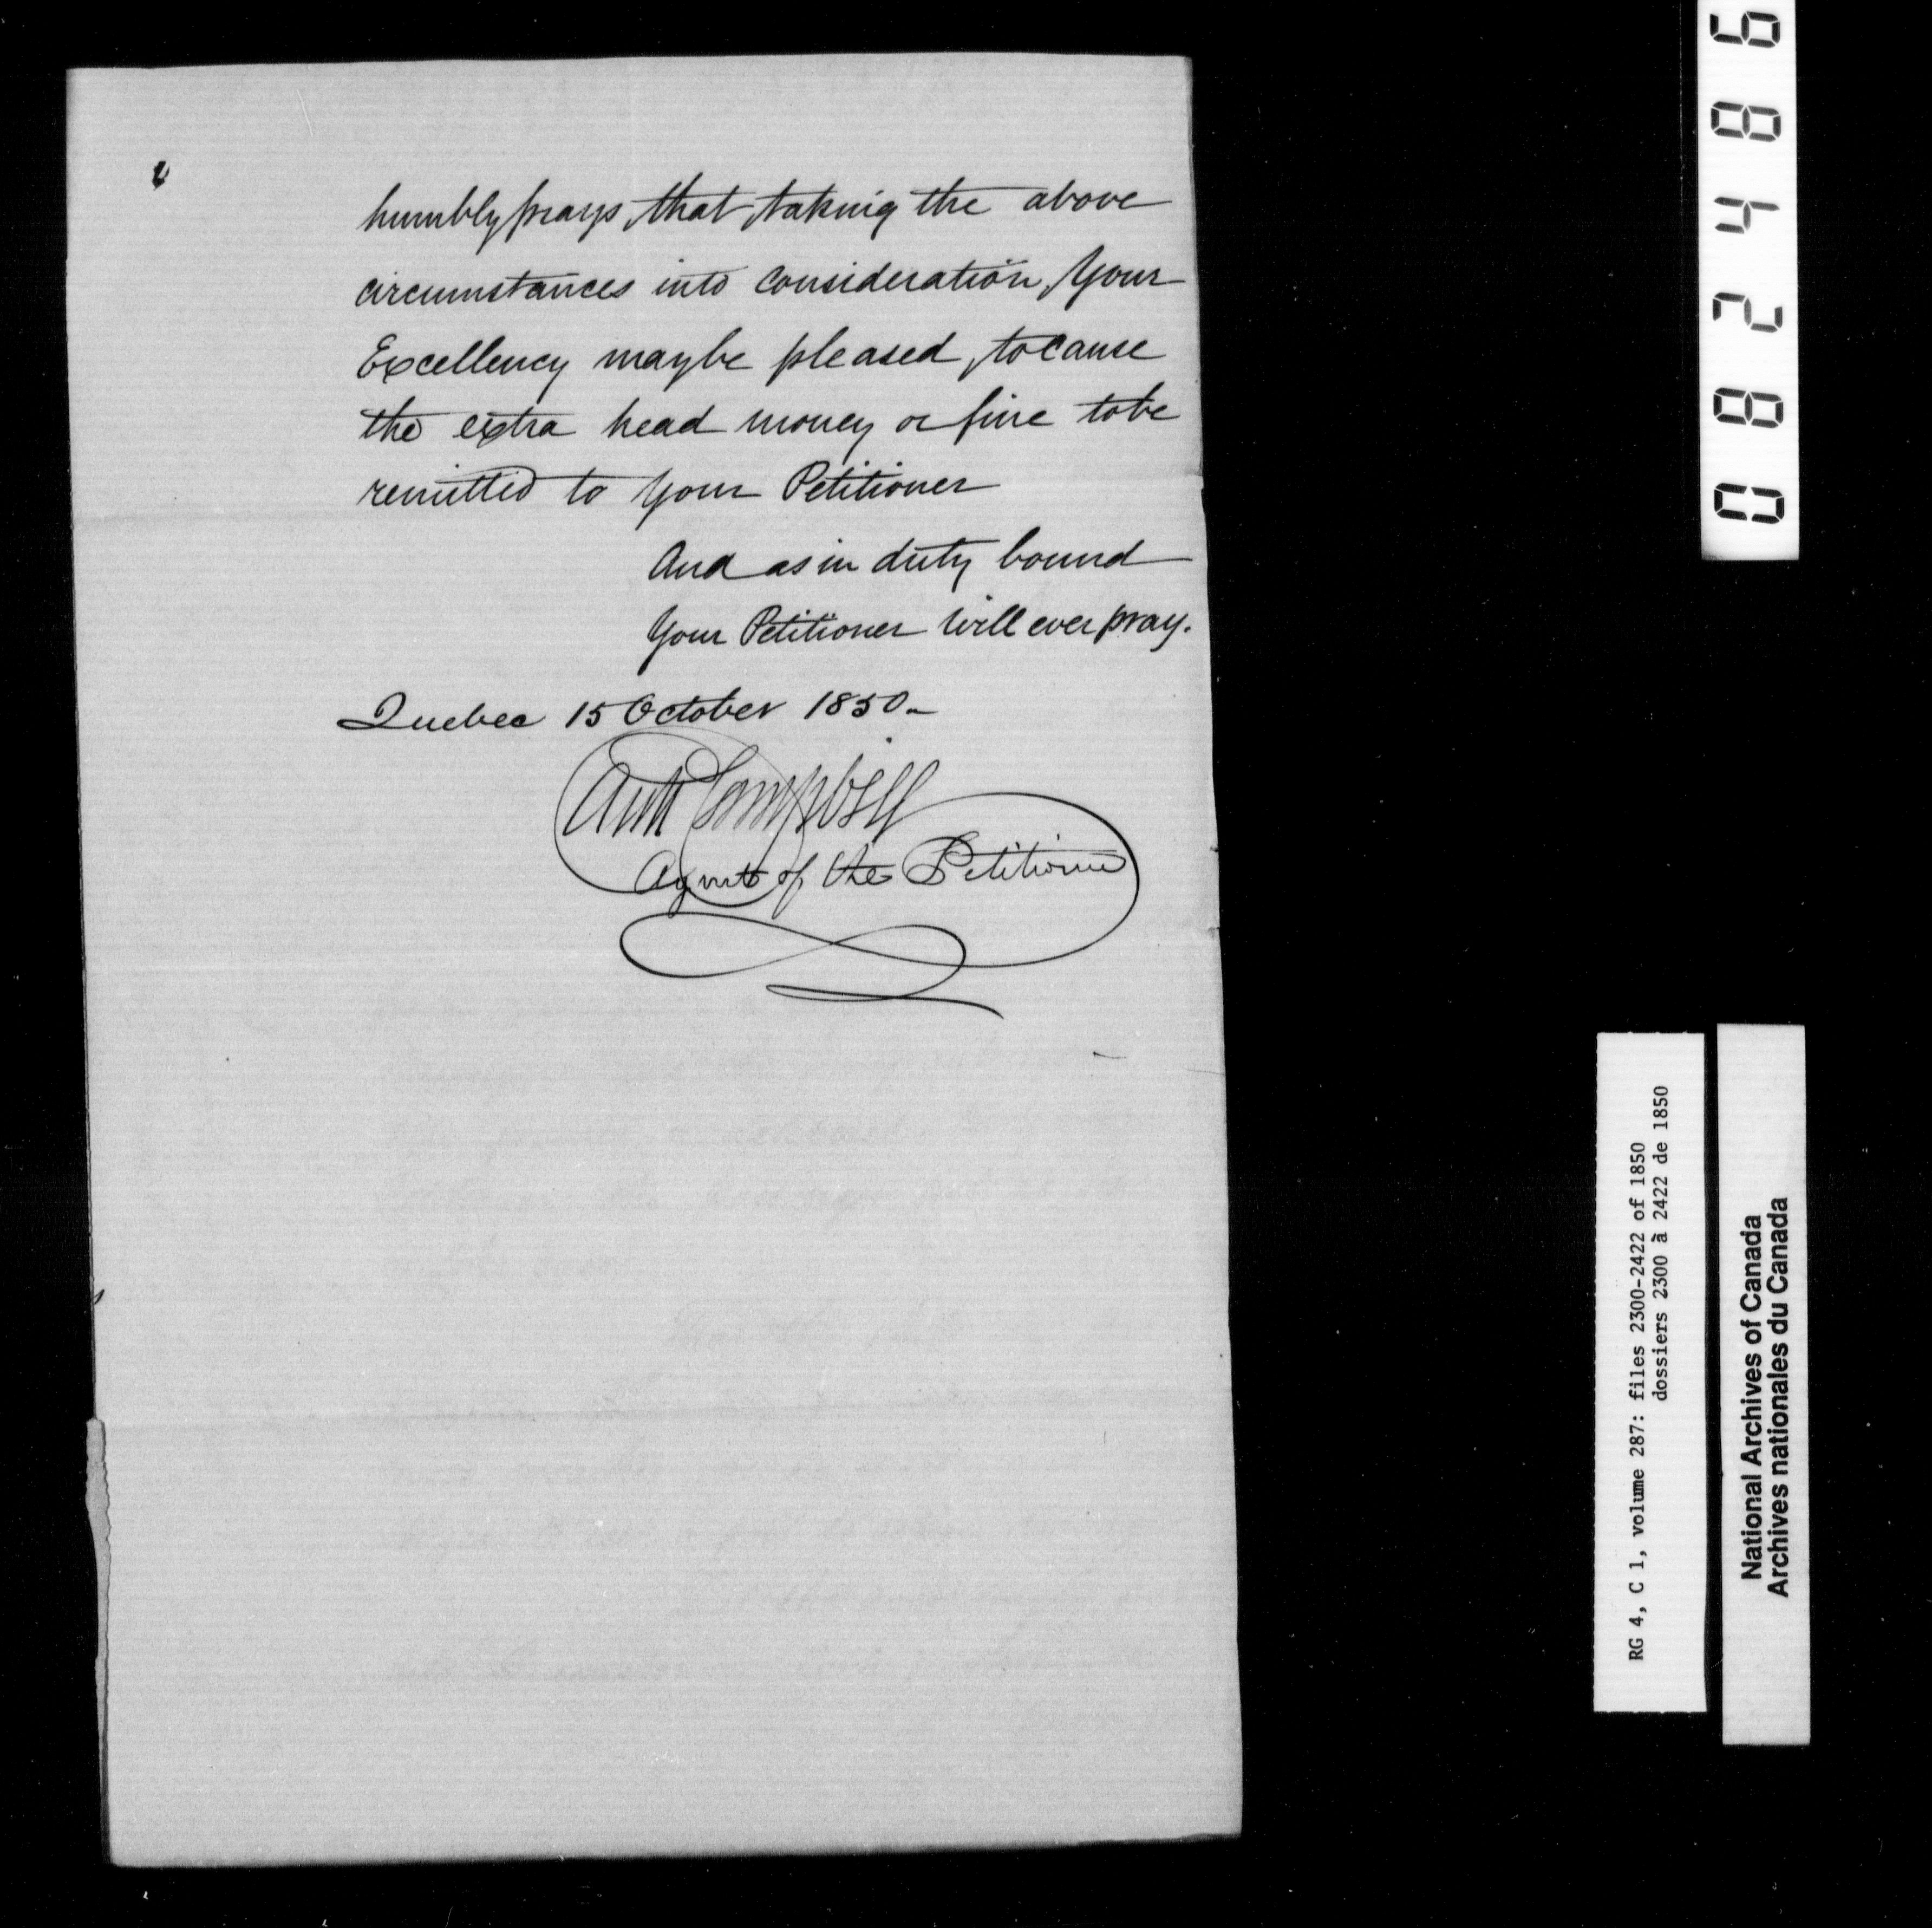 humbly prays, that, taking the above
circumstances into consideration, Your
Excellency may be pleased, to cause
the extra head money or fine to be
remitted to Your Petitioner
And as in duty bound
Your Petitioner will ever pray.
Quebec 15 October 1850.-
Campbell
Agent of the Petitioner
082486
RG 4, C 1, volume 287: files 2300-2422 of 1850
dossiers 2300 à 2422 de 1850
National Archives of Canada
Archives nationales du Canada